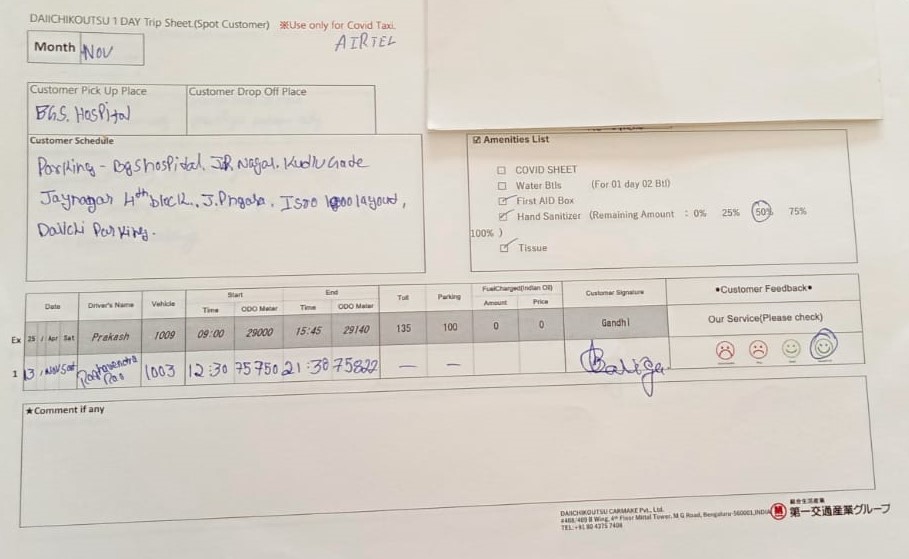 DAIICHIKOUTSU 1 DAY Trip Sheet.(Spot Customer) ※Use only for Covid Taxi.
AIRTEL
Month Nov
Customer Pick Up Place
Customer Drop Off Place
BGS. Hospital
Customer Schedule
Parking - Bgshospital. J.P. Nagar. Kudlu Gate
Jaynagar 4th block., J.Pngara, Isro layout,
Daiichi Parking.
☑ Amenities List
COVID SHEET
Water Btls (For 01 day 02 Btl)
First AID Box
Hand Sanitizer (Remaining Amount : 0% 25% 50% 75%
100% )
Tissue
Date Driver's Name Vehicle Start End Toll Parking FuelCharged(Indian Oil) Customer Signature •Customer Feedback•
Time ODO Meter Time ODO Meter Amount Price
Our Service(Please check)
Ex 25 / Apr Sat Prakash 1009 09:00 29000 15:45 29140 135 100 0 0 Gandhi
1 13 / Nov Sat Raghavendra Rao 1003 12:30 75750 21:30 75822 — — Baliga
★Comment if any
DAIICHIKOUTSU CARMAKE Pvt., Ltd.
#468/469 B Wing, 4th Floor Mittal Tower, M G Road, Bengaluru-560001,INDIA
TEL:+91 80 4375 7408
総合生活産業
第一交通産業グループ